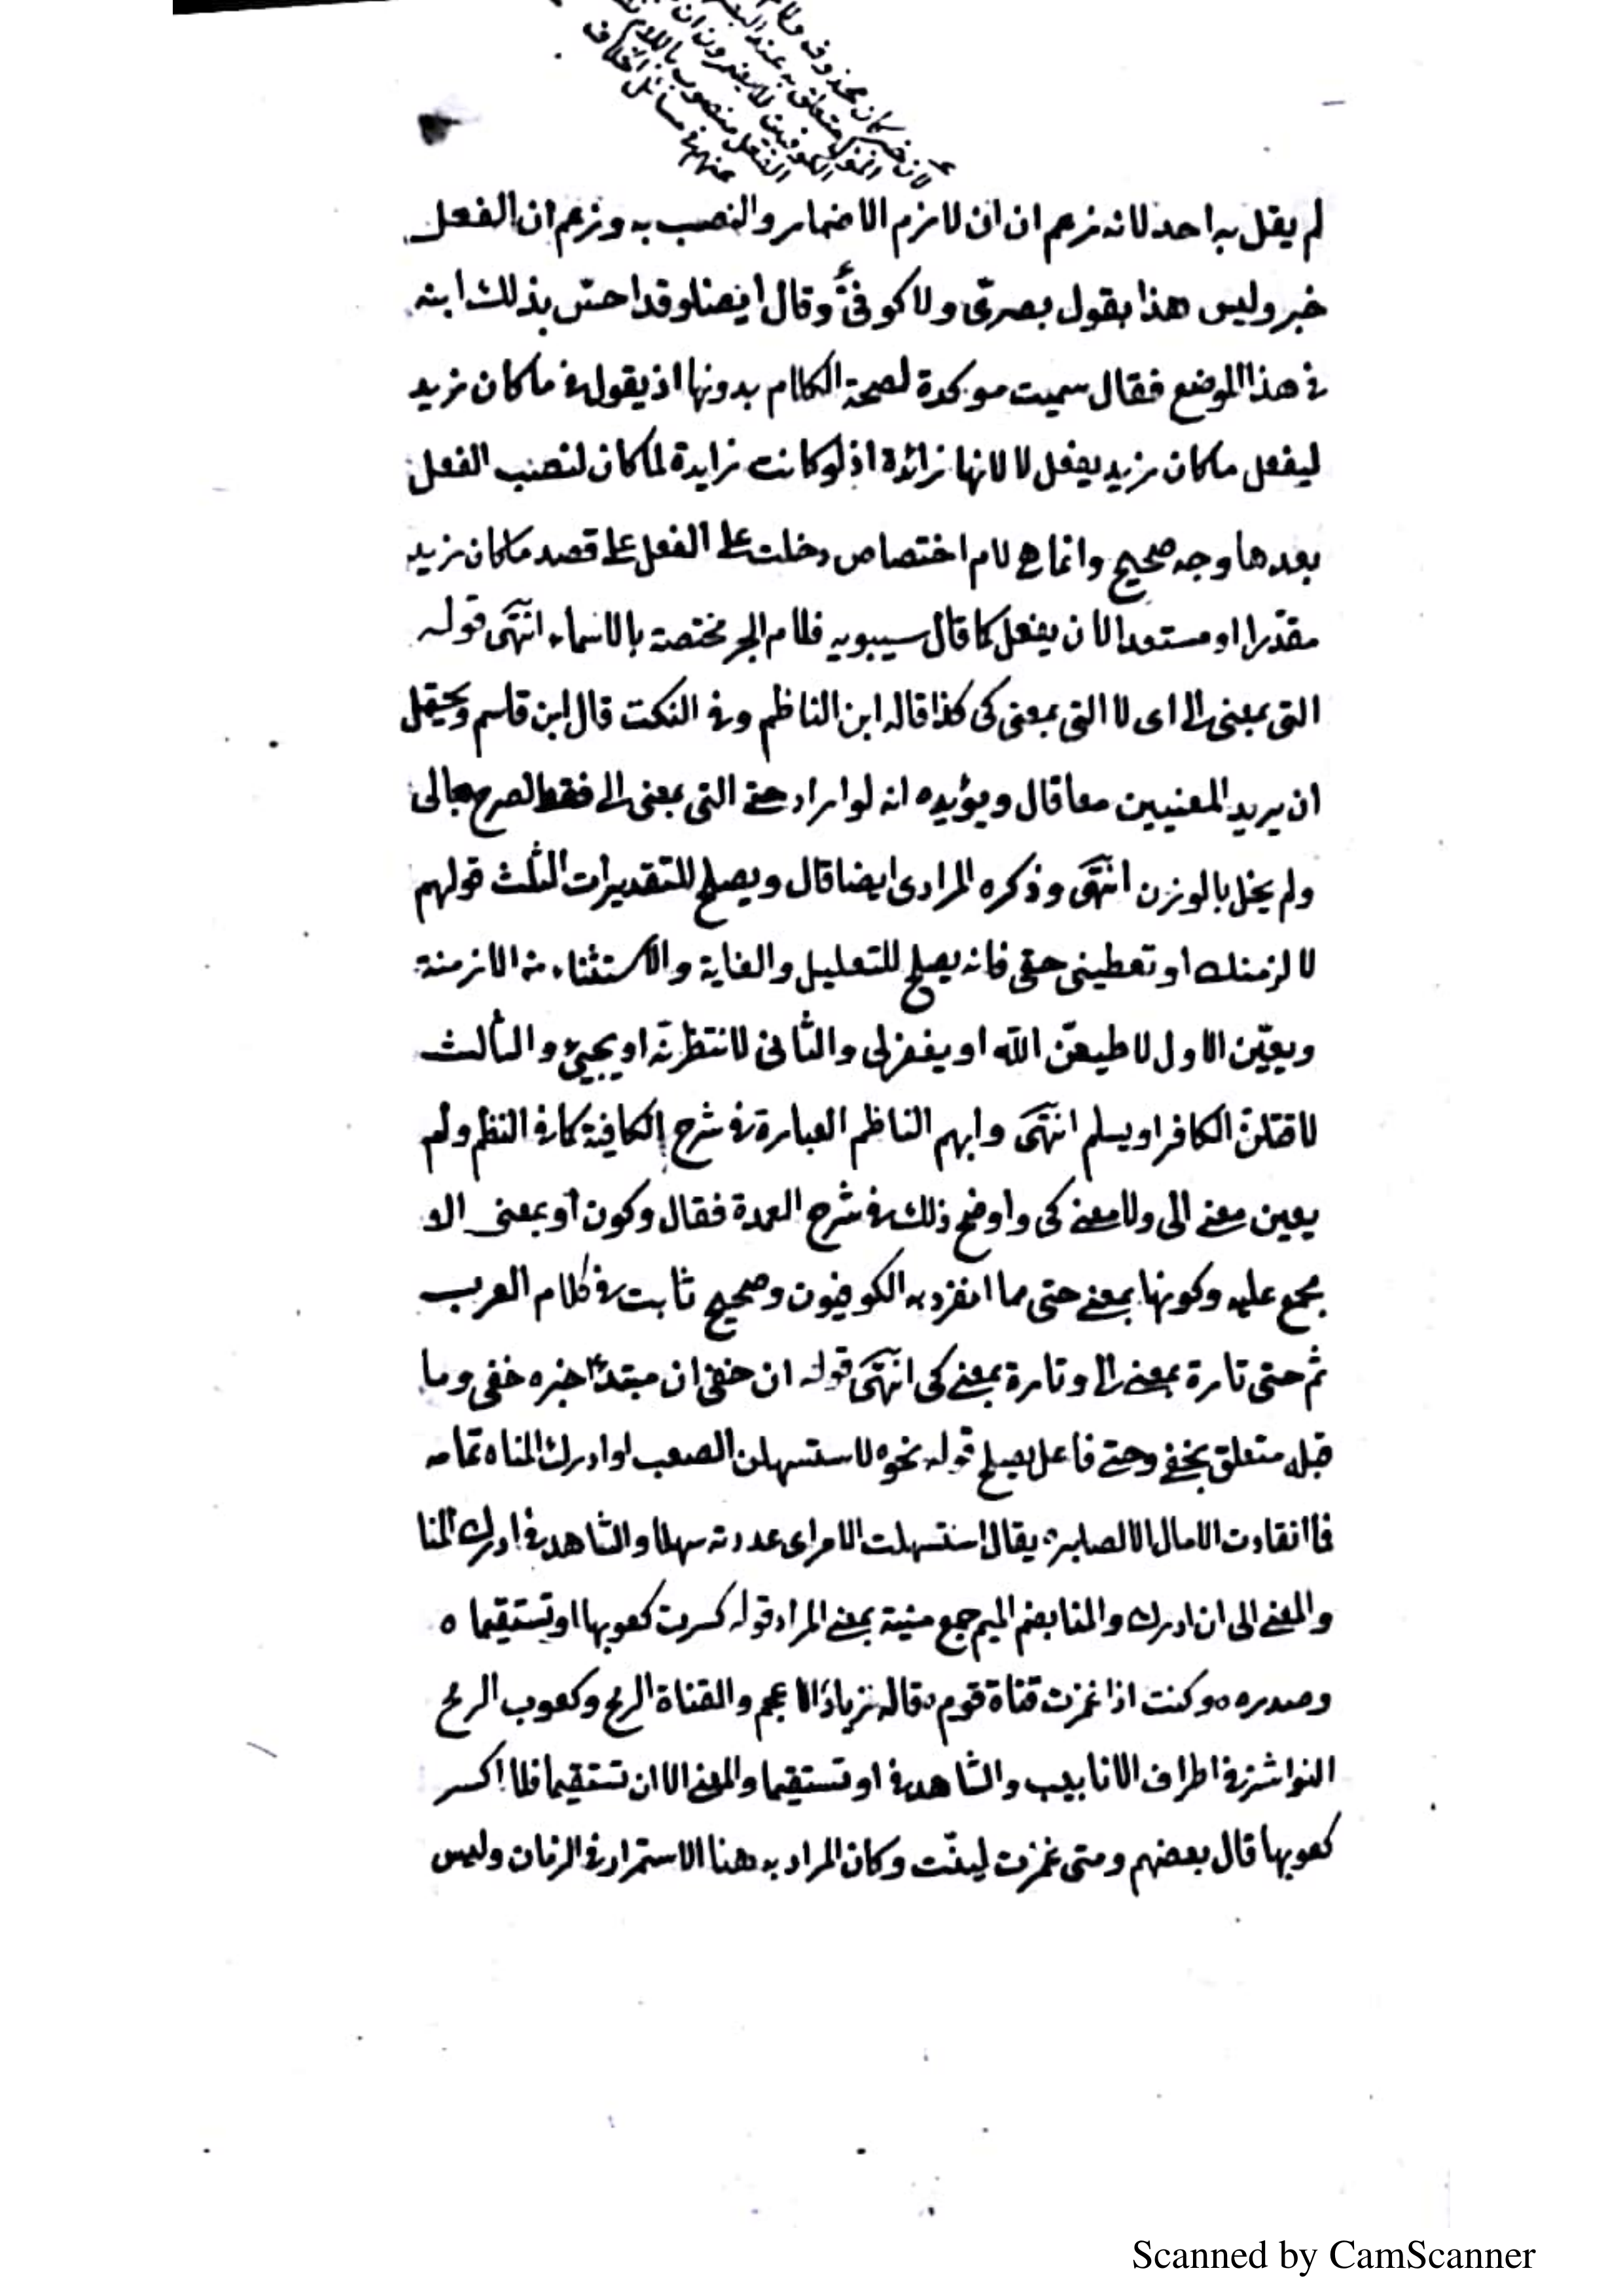 لان خبر كان محذوف
متعلق به عند
الكوفيين لا يقدرون ان
الفعل منصوب باللام
منه في مسائل الخلاف
لم يقل به احد لانه زعم ان ان لازم الاضمار والنصب به وزعم ان الفعل
خبر وليس هذا بقول بصرىّ ولا كوفىّ وقال ايضا وقد احسّ بذلك ابنه
فى هذا الموضع فقال سميت موكدة لصحة الكلام بدونها اذ يقول فى ما كان زيد
ليفعل ما كان زيد يفعل لا لانها زائدة اذ لو كانت زايدة لما كان لنصب الفعل
بعدها وجه صحيح وانما هى لام اختصاص دخلت على الفعل على قصد ما كان زيد
مقدرا او مستعدا لان يفعل كما قال سيبويه فلام الجر مختصة بالاسماء انتهى قوله
التى بمعنى الى اى لا التى بمعنى كى كذا قاله ابن الناظم وفى النكت قال ابن قاسم ويحتمل
ان يريد المعنيين معا قال ويؤيده انه لو اراد حتى التى بمعنى الى فقط لصرح بالى
ولم يخل بالوزن انتهى وذكره المرادى ايضا قال ويصلح للتقديرات الثلث قولهم
لالزمنك او تعطينى حقى فانه يصلح للتعليل والغاية والاستثناء من الازمنة
ويعيّن الاول لاطيعنّ الله او يغفر لى والثانى لانتظرنّه او يجيئ والثالث
لاقتلنّ الكافر او يسلم انتهى وابهم الناظم العبارة فى شرح الكافية كما فى النظم ولم
يعين معنى الى ولا معنى كى واوضح ذلك فى شرح العمدة فقال وكون أو بمعنى الا
مجمع عليه وكونها بمعنى حتى مما انفرد به الكوفيون وصحيح ثابت فى كلام العرب
ثم حتى تارة بمعنى الى وتارة بمعنى كى انتهى قوله ان خفى ان مبتدأ خبره خفى وما
قبله متعلق بخفى وحتى فاعل يصلح قوله نحو لاستسهلن الصعب او ادرك المنا ه تمامه
فما انقادت الامال الا لصابر ه يقال استسهلت الامر اى عددته سهلا والشاهد فى ادرك المنا
والمعنى الى ان ادرك والمنا بضم الميم جمع منية بمعنى المراد قوله كسرت كعوبها او تستقيما ه
وصدره ه وكنت اذا غمزت قناة قوم ه قاله زياد الاعجم والقناة الرمح وكعوب الرمح
النواشز فى اطراف الانابيب والشاهد فى او تستقيما والمعنى الا ان تستقيما فلا اكسر
كعوبها قال بعضهم ومتى غمزت ليّنت وكان المراد به هنا الاستمرار فى الزمان وليس
Scanned by CamScanner